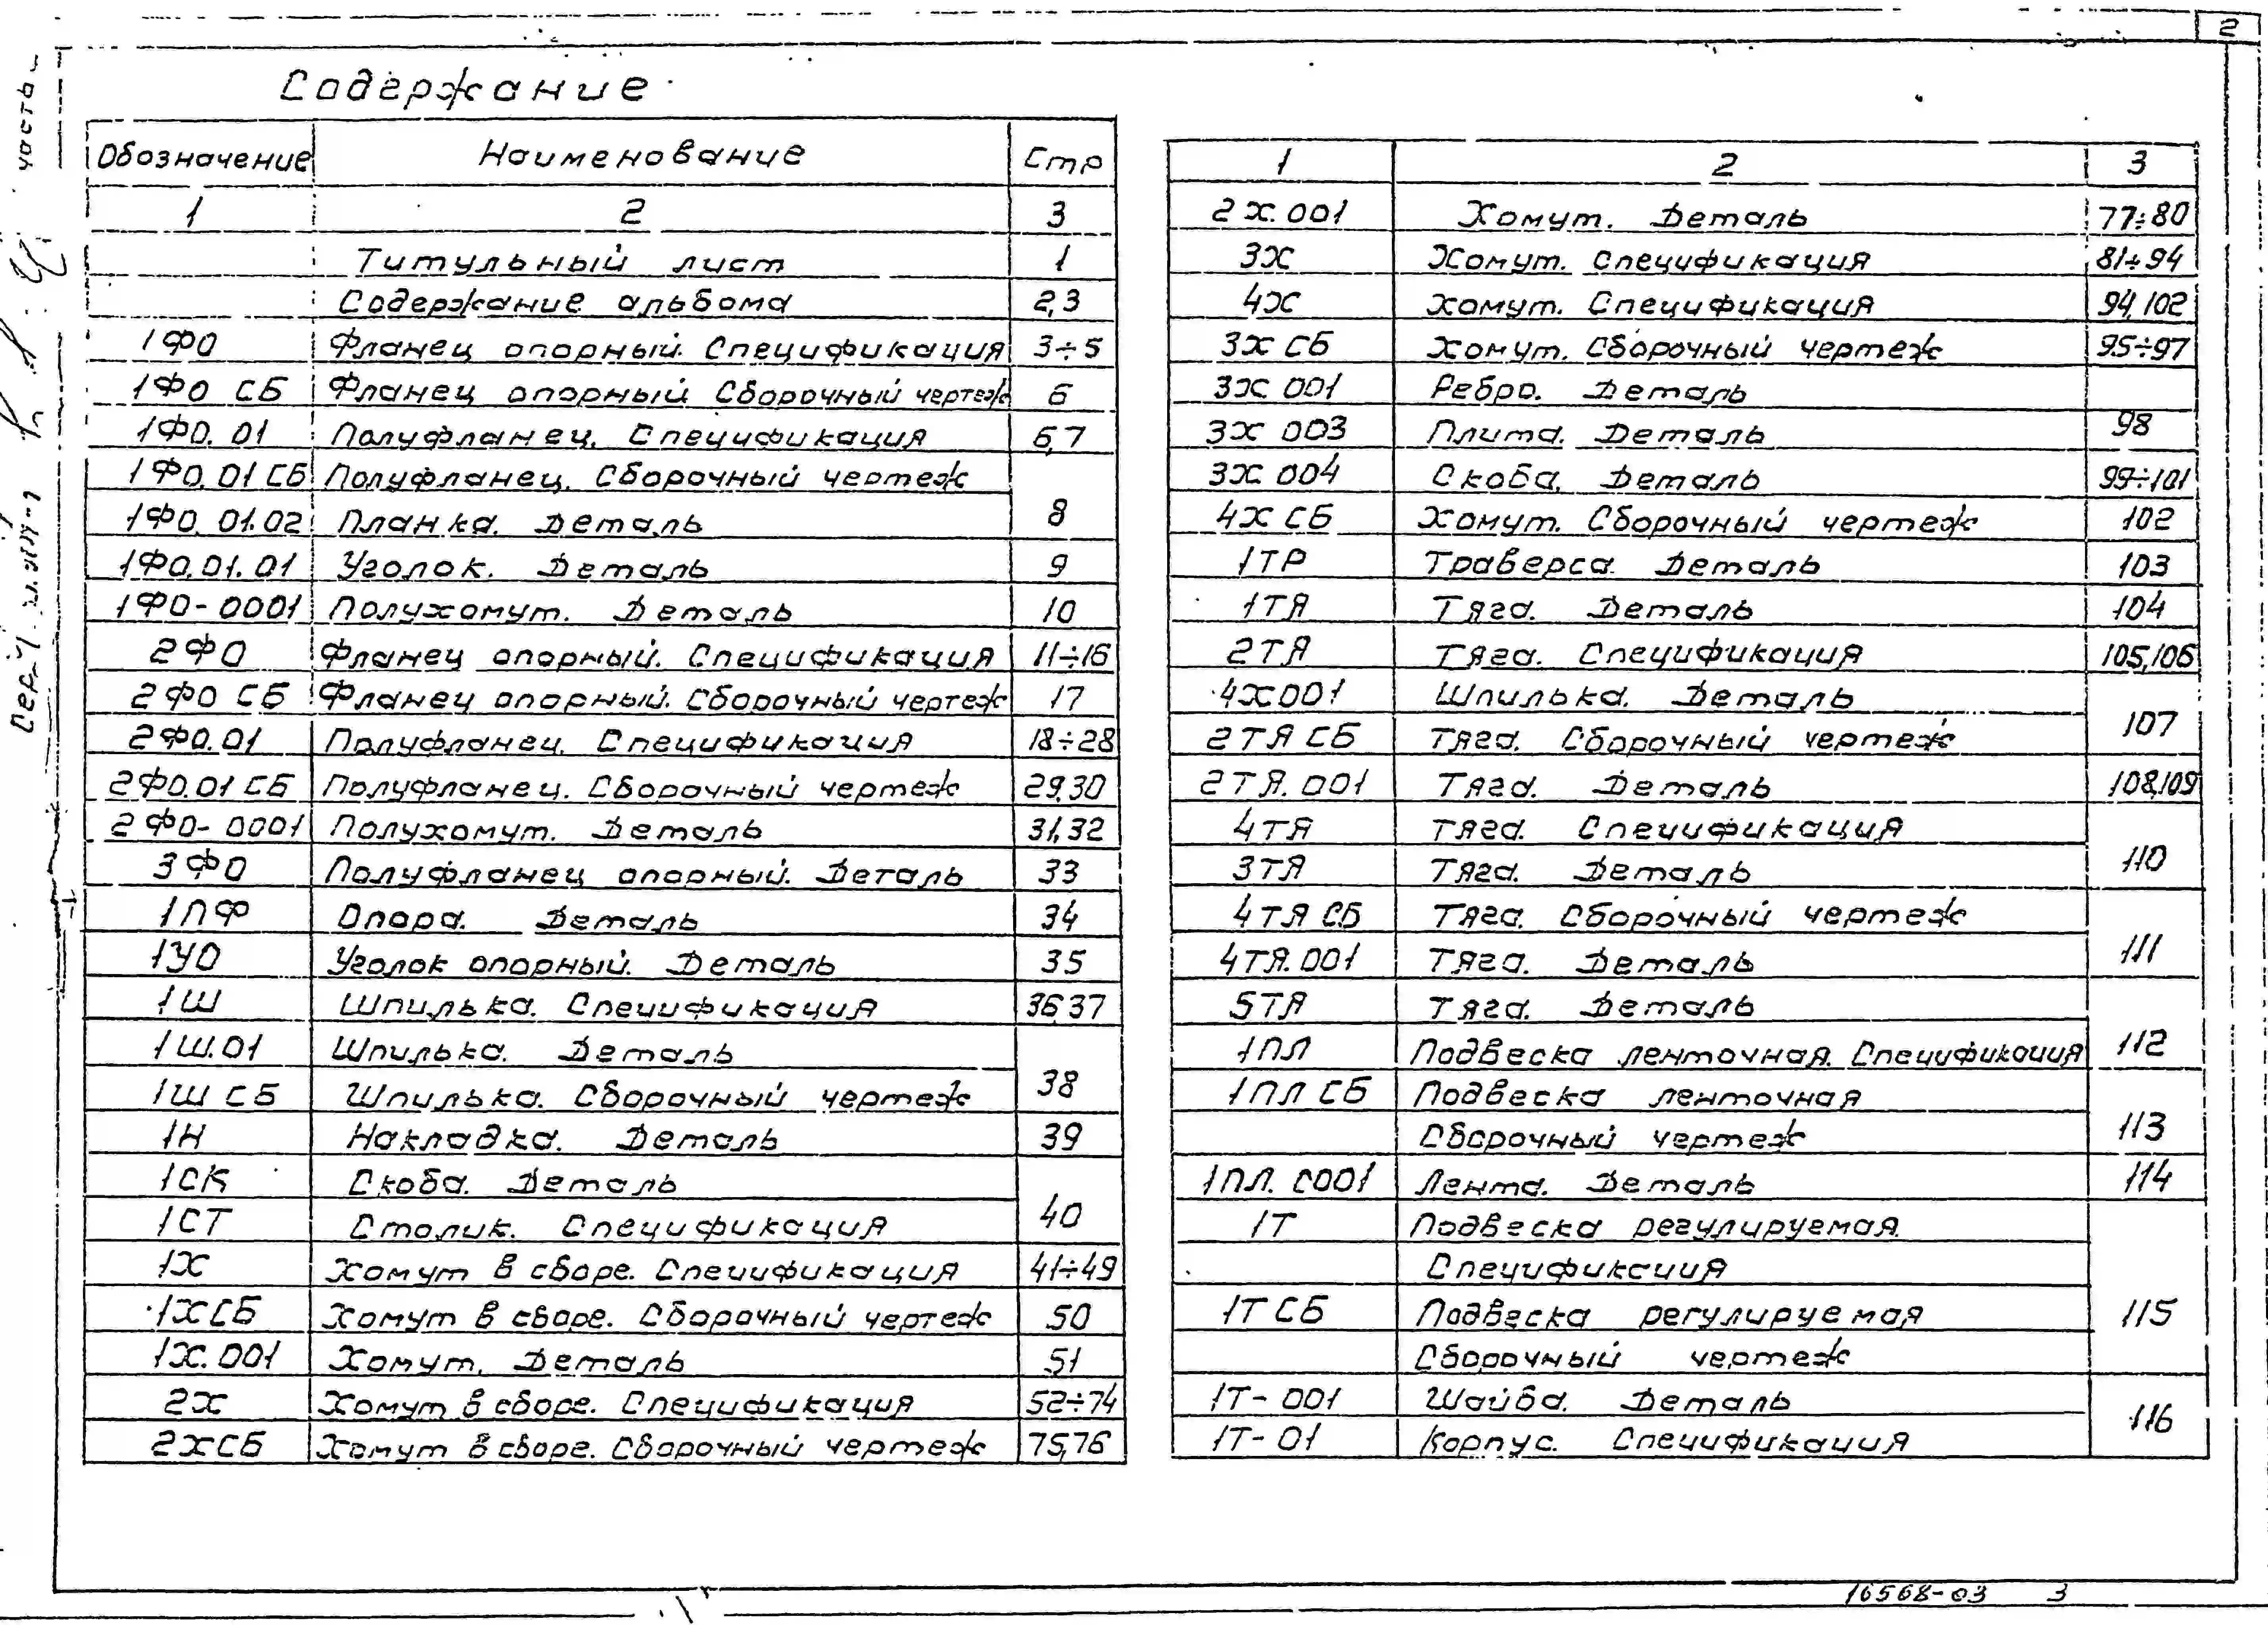 2
Содержание
Обозначение Наименование Стр
1 2 3
Титульный лист 1
Содержание альбома 2,3
1ФО Фланец опорный. Спецификация 3÷5
1ФО СБ Фланец опорный Сборочный чертеж 6
1ФО.01 Полуфланец. Спецификация 6,7
1ФО.01 СБ Полуфланец. Сборочный чертеж
1ФО.01.02 Планка. Деталь 8
1ФО.01.01 Уголок. Деталь 9
1ФО-0001 Полухомут. Деталь 10
2ФО Фланец опорный. Спецификация 11÷16
2ФО СБ Фланец опорный. Сборочный чертеж 17
2ФО.01 Полуфланец. Спецификация 18÷28
2ФО.01 СБ Полуфланец. Сборочный чертеж 29,30
2ФО-0001 Полухомут. Деталь 31,32
3ФО Полуфланец опорный. Деталь 33
1ПФ Опора. Деталь 34
1УО Уголок опорный. Деталь 35
1Ш Шпилька. Спецификация 36,37
1Ш.01 Шпилька. Деталь
1Ш СБ Шпилька. Сборочный чертеж 38
1Н Накладка. Деталь 39
1СК Скоба. Деталь
1СТ Столик. Спецификация 40
1Х Хомут в сборе. Спецификация 41÷49
1ХСБ Хомут в сборе. Сборочный чертеж 50
1Х.001 Хомут. Деталь 51
2Х Хомут в сборе. Спецификация 52÷74
2ХСБ Хомут в сборе. Сборочный чертеж 75,76
1 2 3
2Х.001 Хомут. Деталь 77÷80
3Х Хомут. Спецификация 81÷94
4Х Хомут. Спецификация 94,102
3Х СБ Хомут. Сборочный чертеж 95÷97
3Х 001 Ребро. Деталь
3Х 003 Плита. Деталь 98
3Х.004 Скоба. Деталь 99÷101
4Х СБ Хомут. Сборочный чертеж 102
1ТР Траверса. Деталь 103
1ТЯ Тяга. Деталь 104
2ТЯ Тяга. Спецификация 105,106
4Х001 Шпилька. Деталь
2ТЯ СБ Тяга. Сборочный чертеж 107
2ТЯ.001 Тяга. Деталь 108,109
4ТЯ Тяга. Спецификация
3ТЯ Тяга. Деталь 110
4ТЯ СБ Тяга. Сборочный чертеж
4ТЯ.001 Тяга. Деталь 111
5ТЯ Тяга. Деталь
1ПЛ Подвеска ленточная. Спецификация 112
1ПЛ СБ Подвеска ленточная
Сборочный чертеж 113
1ПЛ.0001 Лента. Деталь 114
1Т Подвеска регулируемая.
Спецификация
1Т СБ Подвеска регулируемая 115
Сборочный чертеж
1Т-001 Шайба. Деталь
1Т-01 Корпус. Спецификация 116
16568-03 3
часть